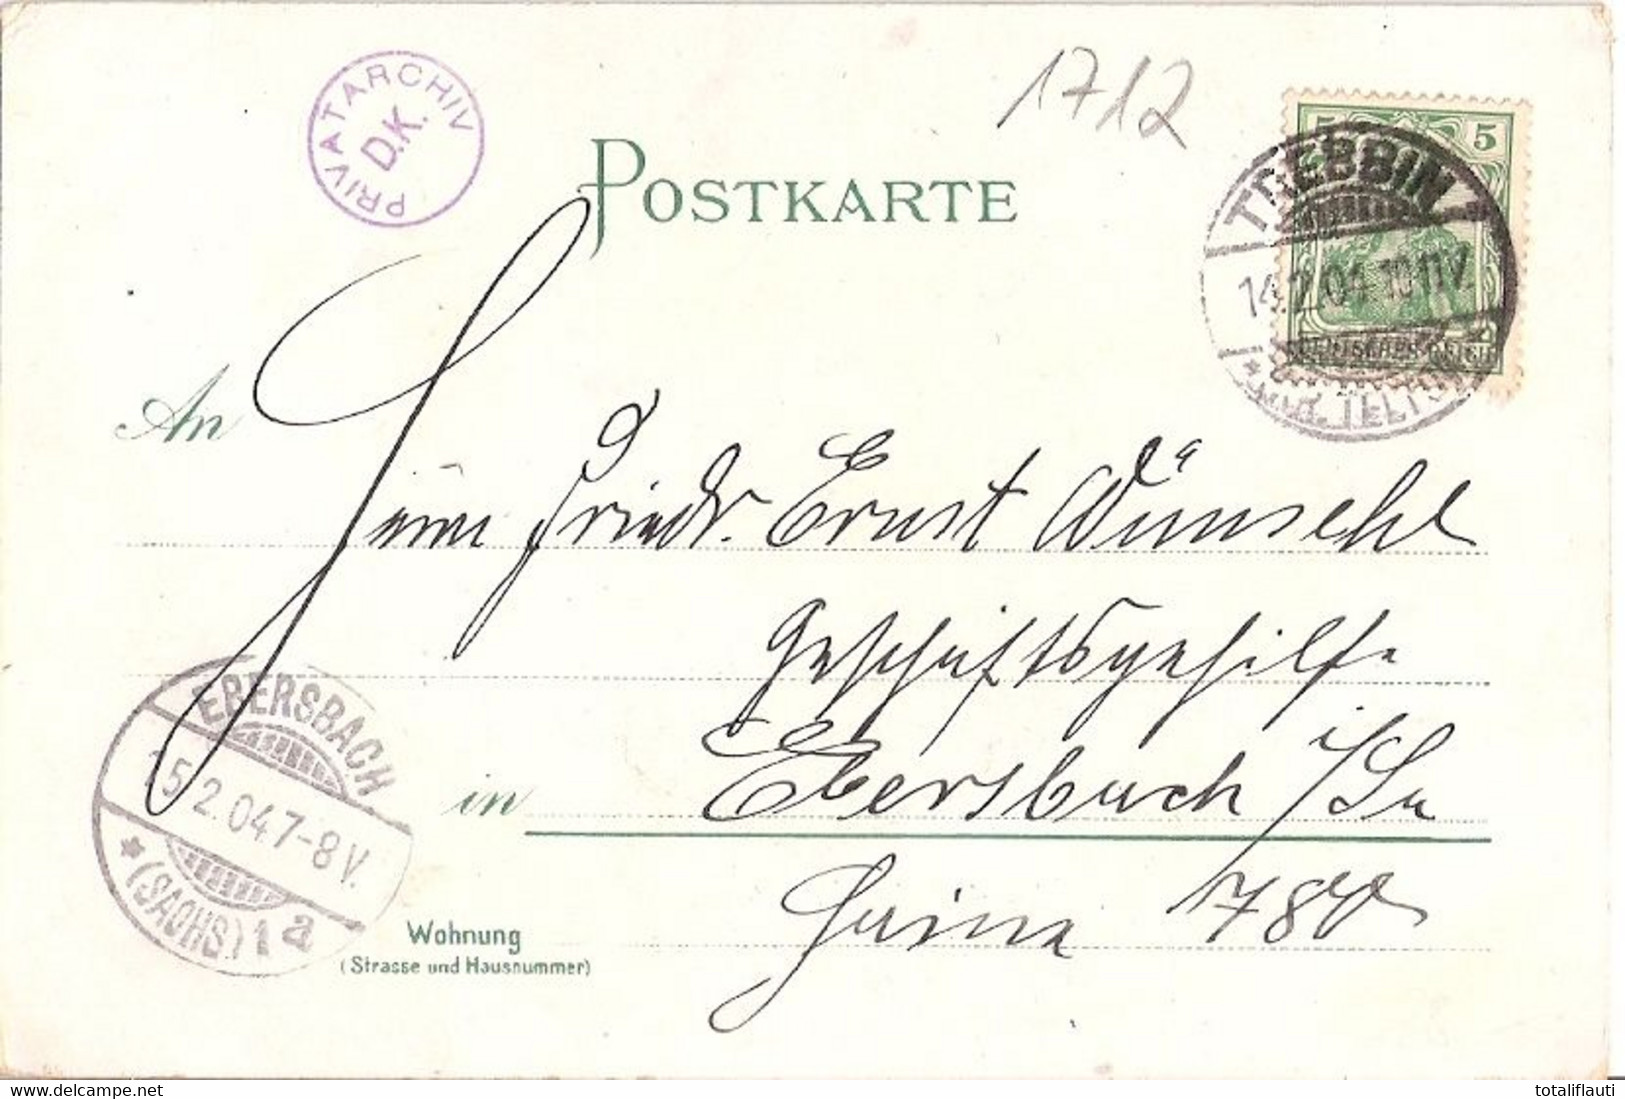 1712
PRIVATARCHIV
D.K.
POSTKARTE
5 5
TREBBIN
14.2.04 10-11V.
DEUTSCHES REICH
* (KR. TELTOW) *
An
Herrn Friedr. Ernst Wünsche
Geschäftsgehilfe
in Ebersbach i/Sa
EBERSBACH
15.2.04.7-8V.
* (SACHS.) 1 a
Wohnung
(Strasse und Hausnummer)